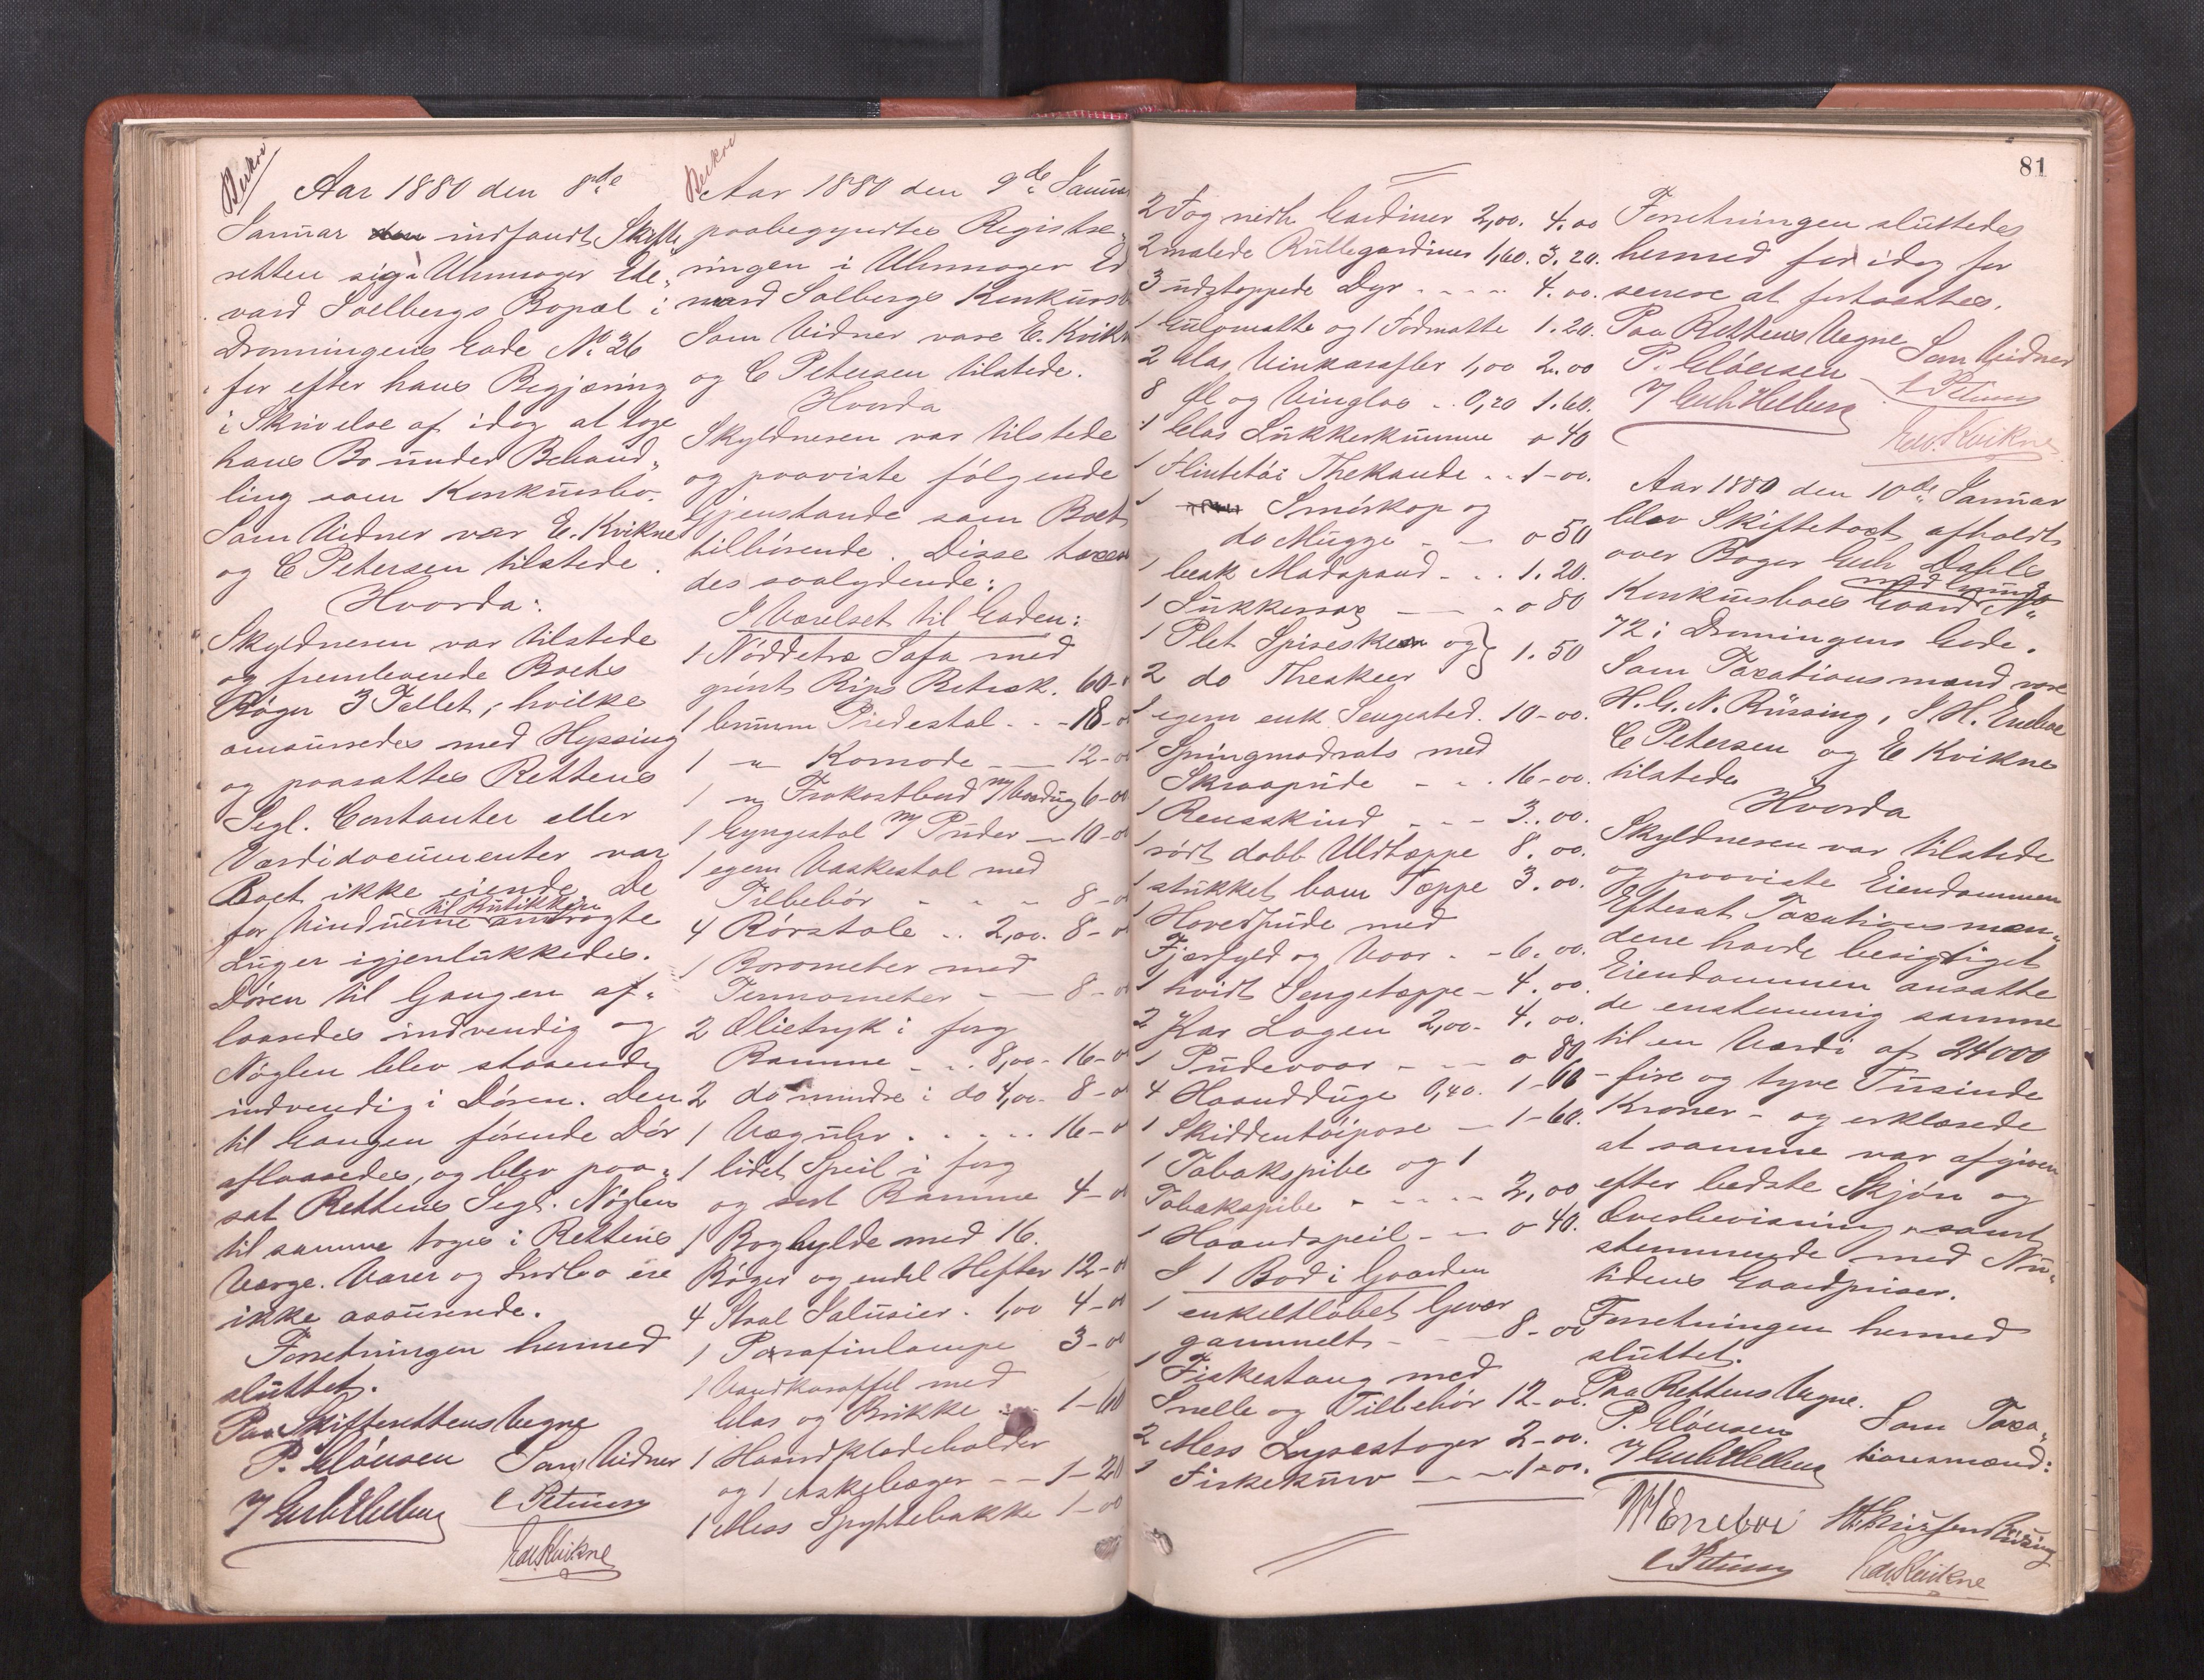 Beskrv
Aar 1880 den 8de
Januar indfandt Skifte
retten sig i Uhrmager Ed-
vard Solbergs Bopæl i
Dronningens Gade No 36
for efter hans Begjæring
i Skrivelse af idag at tage
hans Bo under Behand-
ling som Konkursbo.
Som Vidner var E. Kvikne
og C Petersen tilstede.
Hvorda:
Skyldneren var tilstede
og fremleverede Boets
Bøger 3 Tallet, hvilke
omsurredes med Hyssing
og paasattes Rettens
Segl. Contanter eller
Værdidocumenter var
Boet ikke eiende. De
til Butikken
for Vinduerne anbragte
Luger igjenlukkedes.
Døren til Gangen af-
laasedes indvendig og
Nøglen blev staaende
indvendig i Døren. Den
til Gangen førende Dør
aflaasedes, og blev paa-
sat Rettens Segl. Nøglen
til samme toges i Rettens
Værge. Varer og Indbo ere
ikke assurerede.
Forretningen hermed
sluttet.
Paa Skifterettens Vegne
P. Clausen Som Vidner
C Petersen
Edv. Kvikne
Beskrv
Aar 1880 den 9de Janua
paabegyndtes Registre-
ringen i Uhrmager Ed
vard Solbergs Konkursb
Som Vidner vare E. Kvikn
og C Petersen tilstede.
Hvorda
Skyldneren var tilstede
og paaviste følgende
Gjenstande som Boet
tilhørende. Disse taxer
des saalydende:
I Værelset til Gaden:
1 Nøddetræ Sofa med
grønt Rips Betræk. 60-
1 bruun Piedestal . . - 18-00
1 " Komode — 12-0
1 " Frokostbord m/ Voxdug 6-00
1 Gyngestol m/ Puder — 10-0
1 egern Vaskestol med
Tilbehør - - - 8-0
4 Rørstole .. 2,00. 8-0
1 Barometer med
Termometer - — 8-0
2 Olietryk i forg
Ramme - . . 8,00 - 16-0
2 do mindre i do 4,00 - 8-0
1 Væguhr . . . . . 16-0
1 lidet Speil i forg
og sort Ramme 4-0
1 Boghylde med 16.
Bøger og endel Hefter 12-0
4 Staal Salusier . 1,00 4-0
1 Parafinlampe 3-00
1 Vandkaraffel med
Glas og Brikke 1-60
1 Haandklædeholder
og 1 Askebæger - - 1-20
1 Mess Spyttebakke 1-00
81
2 Fag Gardiner 2,00. 4.00
2 malede Rullegardiner 1,60. 3.20.
3 udstoppede Dyr - - - - 4.00.
1 Gulvmatte og 1 Fodmatte 1.20.
2 Glas Vinkarafler 1,00 2.00
8 Øl og Vinglas .. 0,20 1.60.
1 Glas Sukkerkumme 0 40
1 Flintetøi Thekande .. 1-00.
1 Smørkop og
do Mugge - — 0 50
1 beak Madspand - . . 1.20.
1 Sukkersax — - 0 80
1 Plet Spiseskee og } 1.50
2 do Theskeer
1 egern enk. Sengested. 10-00.
1 Springmadrats med
Skraapude - - . 16-00.
1 Rensskind - - - 3.00.
1 rødt dobb Uldtæppe 8.00.
1 stukket bom Tæppe 3.00.
1 Hovedpude med
Fjærfyld og Vaar . - 6.00.
1 hvidt Sengetæppe - 4.00.
2 Par Lagen 2,00 - 4.00.
1 Pudevaar - - - 0 80
4 Haandduge 0,40. 1-60
1 Skiddentøipose — 1-60.
1 Tobakspibe og 1
Tobakspibe . - - - - 2,00
1 Haandspeil - — 0 40.
I 1 Bod i Gaarden
1 enkeltløbet Gevær
gammelt - - — 8-00
1 Fiskestang med
Snelle og Tilbehør 12-00.
2 Mess Lysestager 2-00.
1 Fiskekurv — - - 1-00.
Forretningen sluttedes
hermed for idag for
senere at fortsættes.
Paa Rettens Vegne
P. Clausen Som Vidner
C Petersen
Edv. Kvikne
Aar 1880 den 10de Januar
blev Skiftetaxt afholdt
over Bager Dahls
med Grund
Konkursboes Gaard No
72 i Dronningens Gade.
Som Taxationsmænd vare
H. C. N. Rüssing, S. H. Eneboe
C Petersen og E Kvikne
tilstede
Hvorda
Skyldneren var tilstede
og paaviste Eiendommen
Efterat Taxationsmæn-
dene havde besigtiget
Eiendommen ansatte
de enstemmig samme
til en Værdi af 24000
- fire og tyve Tusinde
Kroner - og erklærede
at samme var afgiven
efter bedste Skjøn og
Overbevisning, samt
stemmende med Nu-
tidens Gaardpriser.
Forretningen hermed
sluttet.
Paa Rettens Vegne.
P. Clausen Som Taxa-
tionsmænd:
C Petersen Edv. Kvikne